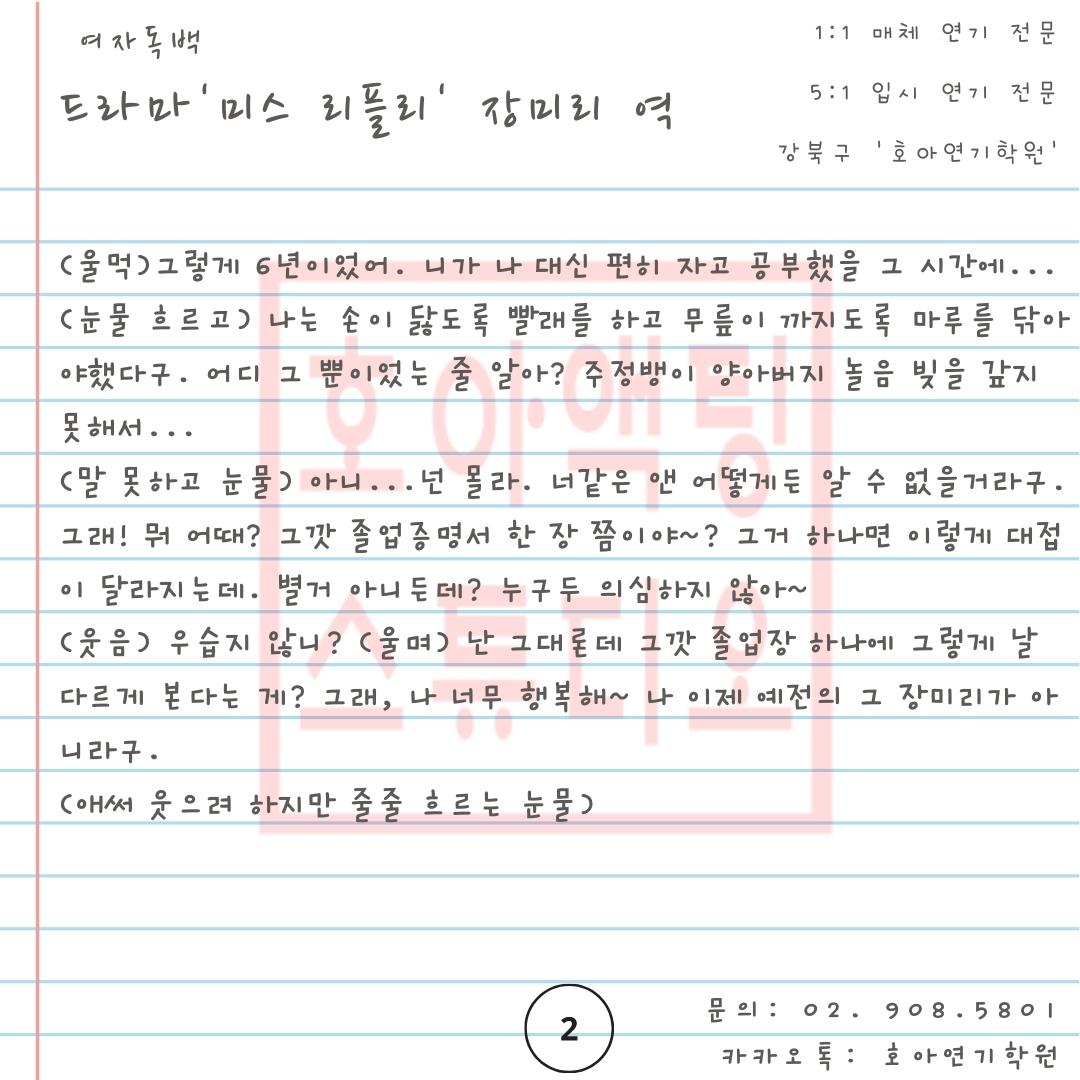 여자독백
드라마'미스 리플리' 장미리 역
1:1 매체 연기 전문
5:1 입시 연기 전문
강북구 '호아연기학원'
(울먹)그렇게 6년이었어. 니가 나 대신 편히 자고 공부했을 그 시간에...
(눈물 흐르고) 나는 손이 닳도록 빨래를 하고 무릎이 까지도록 마루를 닦아
야했다구. 어디 그 뿐이었는 줄 알아? 주정뱅이 양아버지 놀음 빚을 갚지
못해서...
(말 못하고 눈물) 아니...넌 몰라. 너같은 앤 어떻게든 알 수 없을거라구.
그래! 뭐 어때? 그깟 졸업증명서 한 장 쯤이야~? 그거 하나면 이렇게 대접
이 달라지는데. 별거 아니든데? 누구두 의심하지 않아~
(웃음) 우습지 않니? (울며) 난 그대론데 그깟 졸업장 하나에 그렇게 날
다르게 본다는 게? 그래, 나 너무 행복해~ 나 이제 예전의 그 장미리가 아
니라구.
(애써 웃으려 하지만 줄줄 흐르는 눈물)
호아액팅
스튜디오
2
문의: 02. 908.5801
카카오톡: 호아연기학원